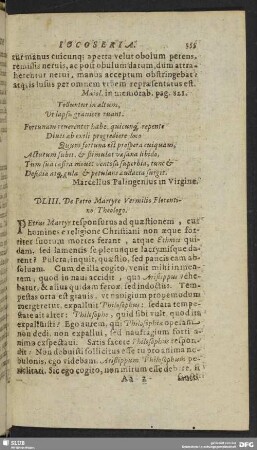 IOCOSERIA. 355
tur manus cuicunq; aperta velut obolum petens,
remissis neruis, ac post obulum datum, dum attra-
herentur nerui, manus acceptum obstringebat:
atq; is lusus per omnem vrbem repræsentatus est.
Maiol. in memorab. pag. 121.
Tolluntur in altum,
Vt lapsu grauiore ruant.
Fortunam reuerenter habe, quicunq; repente
Diues ab exili progrediere loco
Quum fortuna est prospera cuiquam,
Affectum subit, & stimulat vesana libido,
Tum sua castra mouet ventosa superbia, tunc &
Deficia atq; gula & petulans audacia surget.
Marcellus Palingenius in Virgine.
DLIII. De Petro Martyre Vermilio Florenti-
no Theologo.
Petrus Martyr responsurus ad quæstionem, cur
homines è religione Christiani non æque for-
titer suorum mortes ferant, atque Ethnici qui-
dam, sed lamentis se plerunque lacrymisque de-
dant? Pulcra, inquit, quæstio, sed paucis eam ab-
soluam. Cum de illa cogito, venit mihi in men-
tem, quod in naui accidit, qua Aristippus vehe-
batur, & alius quidam ferox, sed indoctus. Tempe-
stas orta est grauis, venamigium propemodum
mergeretur, expalluit Philosophus: sedata tem-
pestate ait alter: Philosophe, quid sibi vult, quod ita
expallusti? Ego autem, qui Philosophiæ operam
non dedi, non expallui, sed naufragium forti a-
nimo exspectaui. Satis facete Philosophus respon-
dit: Non debuisti sollicitus esse tu pro anima ne-
bulonis, ego videbam Aristippum Philosophum pe-
riclitari. Sic ego cogito, non mirum esse debere, si
Aa 2
SLUB